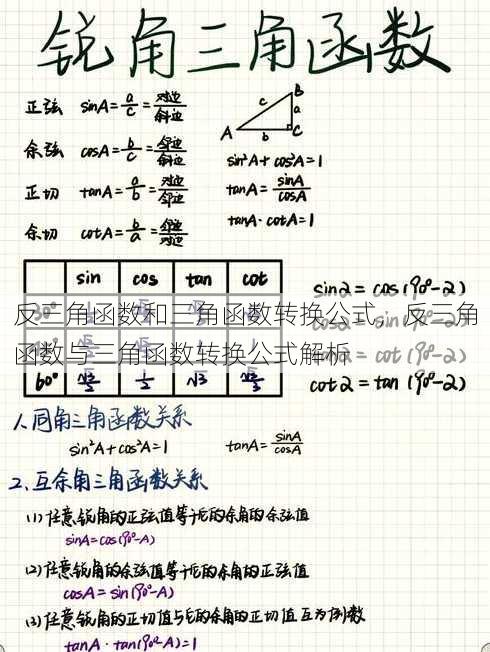 锐角三角函数
正弦 sinA = a/c = 对边/斜边
余弦 cosA = b/c = 邻边/斜边
正切 tanA = a/b = 对边/邻边
余切 cotA = b/a = 邻边/对边
A B C a b c
sin²A + cos²A = 1
tanA = sinA/cosA
tanA · cotA = 1
sin cos tan cot
60° √3/2 1/2 √3 √3/3
sin2 = cos(90°-2)
cot2 = tan(90°-2)
反三角函数和三角函数转换公式，反三角
函数与三角函数转换公式解析
1、同角三角函数关系
sin²A + cos²A = 1 tanA = sinA/cosA
2、互余角三角函数关系
(1) 任意锐角的正弦值等于它的余角的余弦值
sinA = cos(90°-A)
(2) 任意锐角的余弦值等于它的余角的正弦值
cosA = sin(90°-A)
(3) 任意锐角的正切值与它的余角的正切值互为倒数
tanA · tan(90°-A) = 1